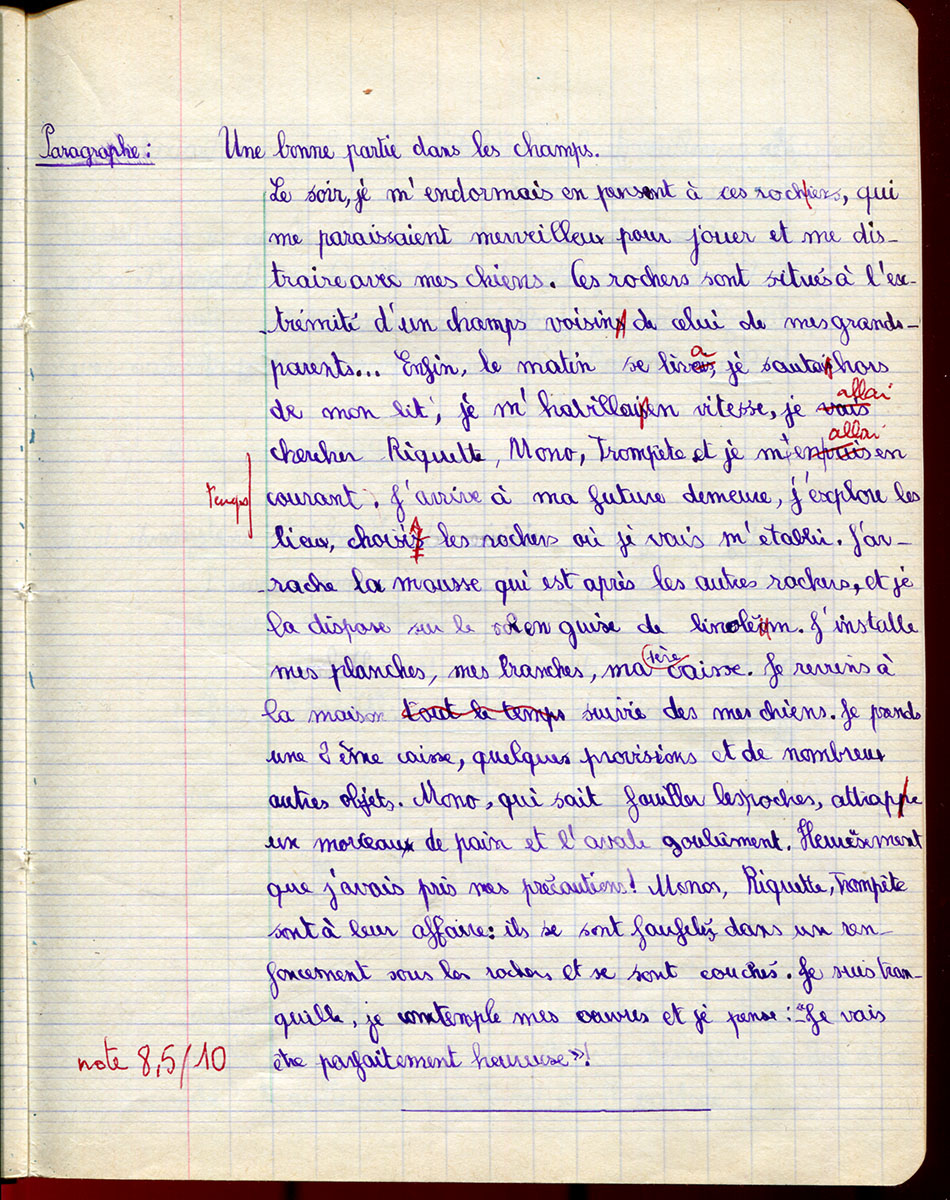 Paragraphe : Une bonne partie dans les champs.
Le soir, je m'endormais en pensent à ces rochiers, qui
me paraissaient merveilleux pour jouer et me dis-
traire avec mes chiens. Ces rochers sont situés à l'ex-
trémité d'un champs voisin de celui de mes grands-
parents... Enfin, le matin se
a
je sautai hors
allai
de mon lit, je m'habillai en vitesse, je vais
allai
chercher Riquette, Mono, Trompète et je m'en en
Temps
courant. J'arrive à ma future demeure, j'explore les
lieux, choisis les rochers où je vais m'établir. J'ar-
rache la mousse qui est après les autres rochers, et je
la dispose sur le sol en guise de linoléum. J'installe
1ère
mes planches, mes branches, ma caisse. Je reviens à
la maison tout le temps suivie des mes chiens. Je prends
une 2ème caisse, quelques provisions et de nombreux
autres objets. Mono, qui sait fouiller les poches, attrappe
un morceaux de pain et l'avale goulûment. Heureusement
que j'avais pris mes précautions! Monos, Riquette, Trompète
sont à leur affaire: ils se sont faufilés dans un ren-
foncement sous les rochers et se sont couchés. Je suis tran-
quille, je contemple mes œuvres et je pense : "Je vais
être parfaitement heureuse»!
note 8,5/10